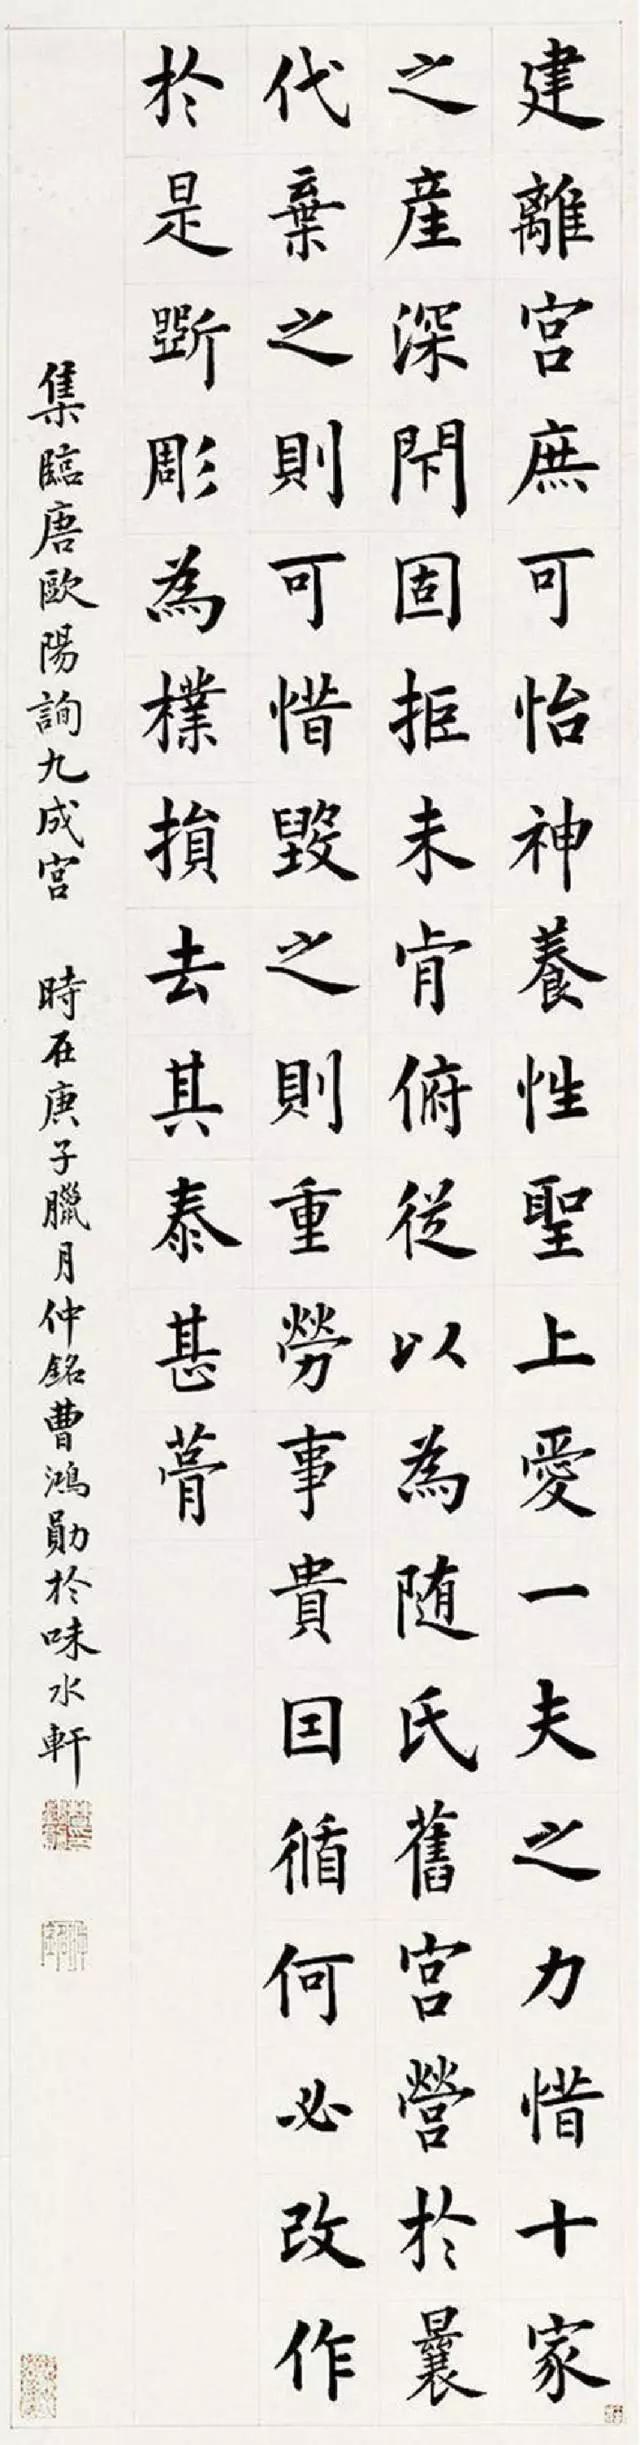 建離宮庶可怡神養性聖上愛一夫之力惜十家
之産深閇固拒未肯俯從以為随氏舊宮營於曩
代棄之則可惜毀之則重勞事貴因循何必改作
於是斲彫為樸損去其泰甚葺
集臨唐歐陽詢九成宮 時在庚子臘月仲銘曹鴻勛於味水軒